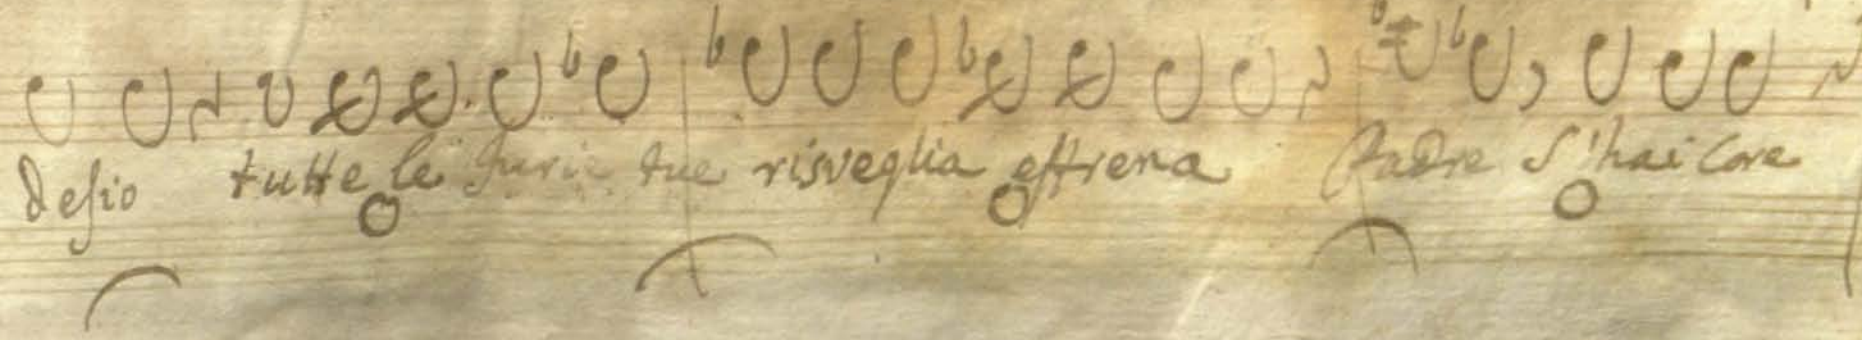 desio tutte le furie tue risveglia effrena Padre s'hai core